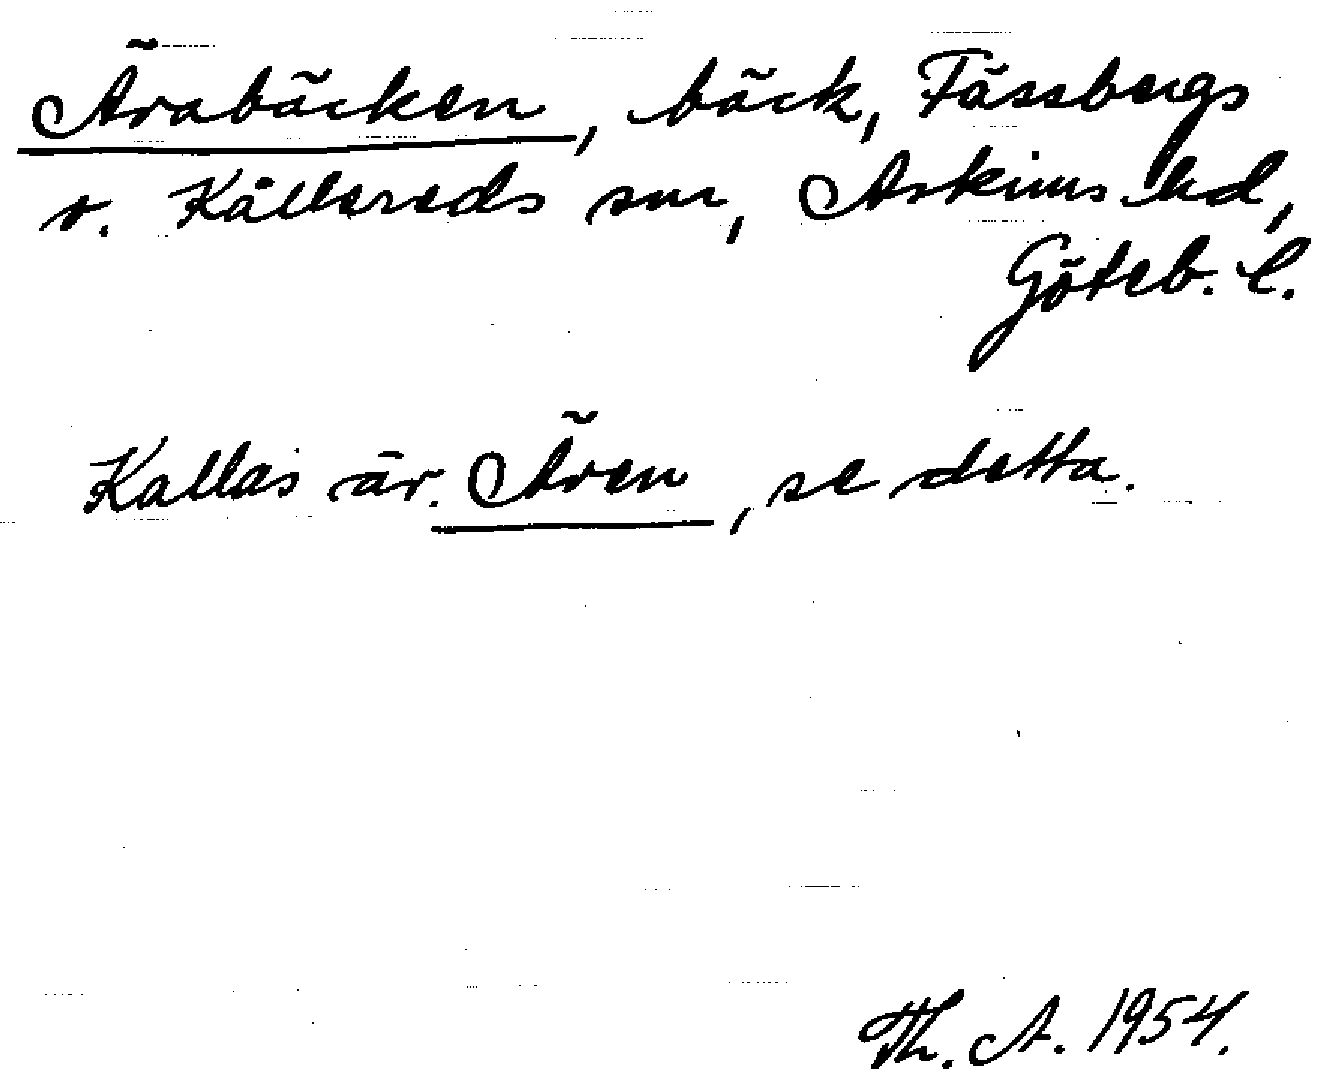 Ärabäcken, bäck, Fässbergs
o. Kållereds snr, Askims hd,
Göteb. l.
Kallas är. Ären, se detta.
Th. A. 1954.